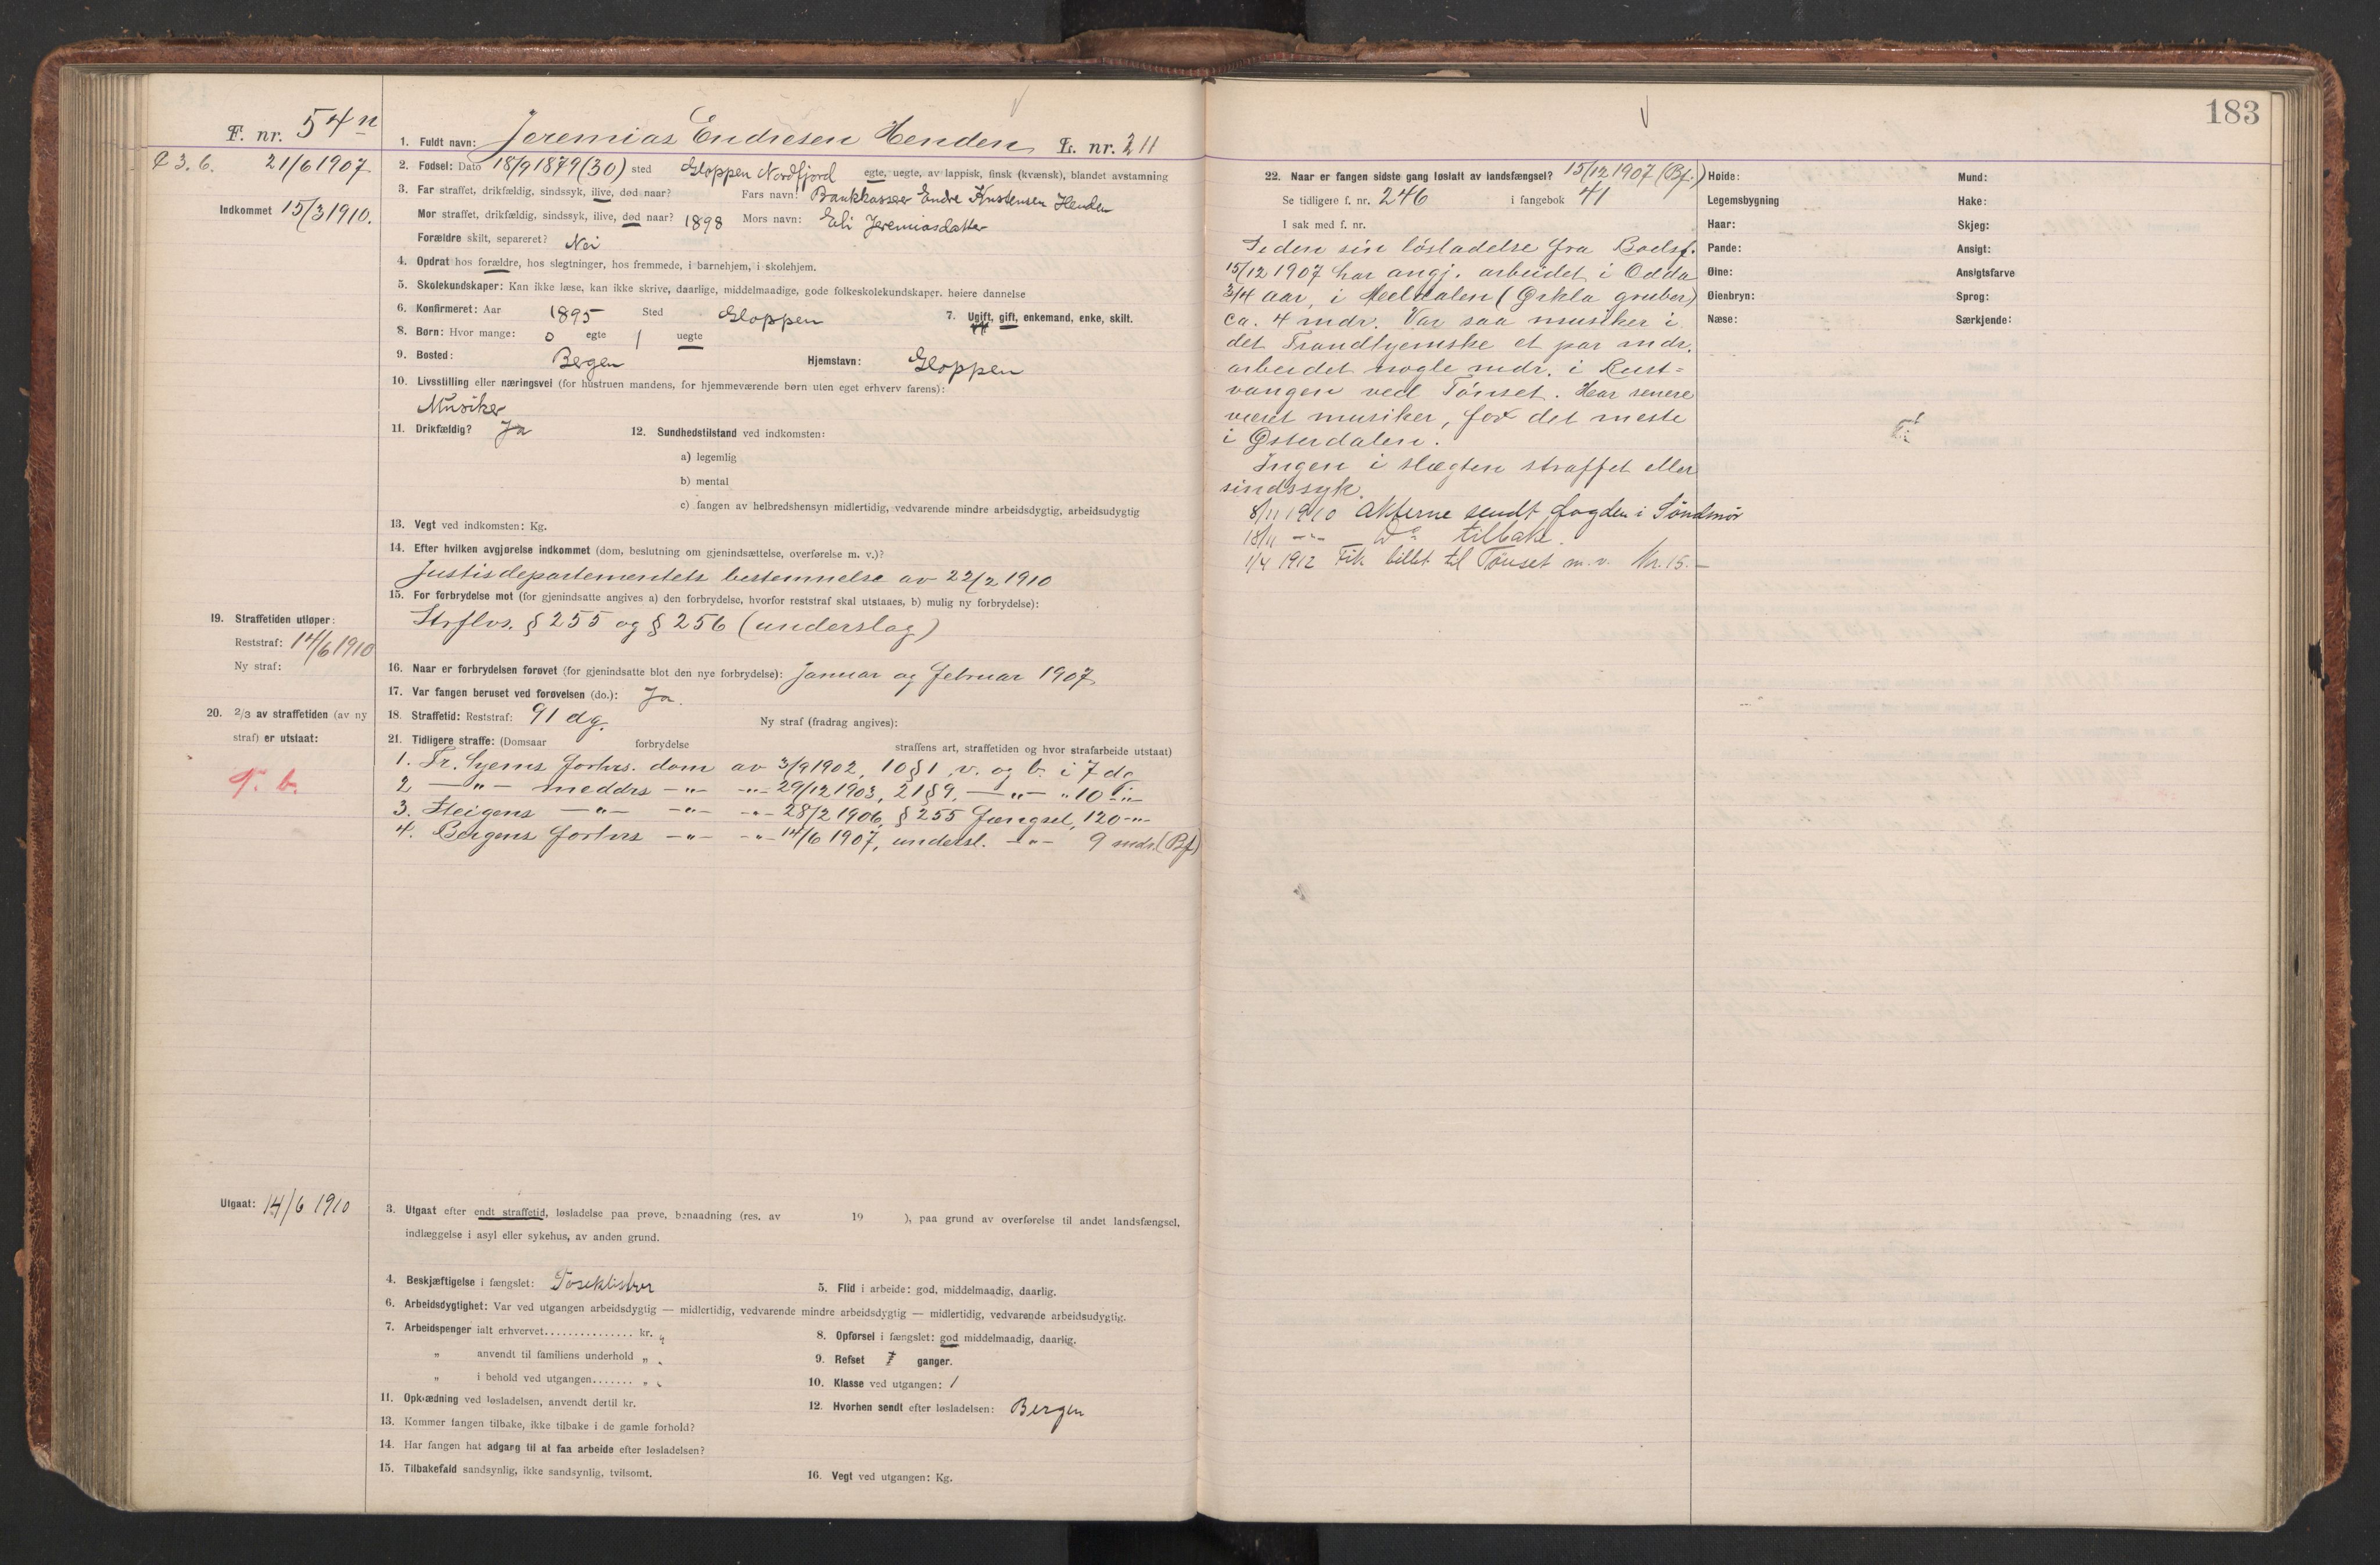 F. nr. 54 n
1. Fuldt navn: Jeremias Endresen Henden L. nr. 211
₵ 3. 6. 21/6 1907
2. Fødsel: Dato 18/9 1879 (30) sted Gloppen Nordfjord egte, uegte, av lappisk, finsk (kvænsk), blandet avstamning
3. Far straffet, drikfældig, sindssyk, ilive, død naar? Fars navn: Bankkasserer Endre Kristensen Henden
Indkommet 15/3 1910.
Mor straffet, drikfældig, sindssyk, ilive, død naar? 1898 Mors navn: Eli Jeremiasdatter
Forældre skilt, separeret? Nei
4. Opdrat hos forældre, hos slegtninger, hos fremmede, i barnehjem, i skolehjem.
5. Skolekundskaper: Kan ikke læse, kan ikke skrive, daarlige, middelmaadige, gode folkeskolekundskaper, høiere dannelse
6. Konfirmeret: Aar 1895 Sted Gloppen 7. Ugift, gift, enkemand, enke, skilt.
8. Børn: Hvor mange: 0 egte 1 uegte
9. Bosted: Bergen Hjemstavn: Gloppen
10. Livsstilling eller næringsvei (for hustruen mandens, for hjemmeværende børn uten eget erhverv farens):
Musiker
11. Drikfældig? Ja 12. Sundhedstilstand ved indkomsten:
a) legemlig
b) mental
c) fangen av helbredshensyn midlertidig, vedvarende mindre arbeidsdygtig, arbeidsudygtig
13. Vegt ved indkomsten: Kg.
14. Efter hvilken avgjørelse indkommet (dom, beslutning om gjenindsættelse, overførelse m. v.)?
Justisdepartementets bestemmelse av 22/2 1910
15. For forbrydelse mot (for gjenindsatte angives a) den forbrydelse, hvorfor reststraf skal utstaaes, b) mulig ny forbrydelse):
Strflvs. § 255 og § 256 (underslag)
19. Straffetiden utløper:
Reststraf: 14/6 1910
Ny straf:
16. Naar er forbrydelsen forøvet (for gjenindsatte blot den nye forbrydelse): Januar og februar 1907
17. Var fangen beruset ved forøvelsen (do.): Ja.
18. Straffetid: Reststraf: 91 dg. Ny straf (fradrag angives):
20. 2/3 av straffetiden (av ny
straf) er utstaat:
N. b.
21. Tidligere straffe: (Domsaar forbrydelse straffens art, straffetiden og hvor strafarbeide utstaat)
1. Tr. hjems forhrs. dom av 3/9 1902, 10 § 1, v. og b. i 7 dg
2. —"— meddrs —"— —"— 29/12 1903, 21 § 9, —"— " 10 —"—
3. Steigens —"— —"— —"— 28/2 1906, § 255 Fængsel, 120 —"—
4. Bergens forhrs —"— —"— 14/6 1907, undersl. —"— 9 mdr. (Bf)
Utgaat: 14/6 1910
3. Utgaat efter endt straffetid, løsladelse paa prøve, benaadning (res. av 19 ), paa grund av overførelse til andet landsfængsel,
indlæggelse i asyl eller sykehus, av anden grund.
4. Beskjæftigelse i fængslet: Poseklistrer 5. Flid i arbeide: god, middelmaadig, daarlig.
6. Arbeidsdygtighet: Var ved utgangen arbeidsdygtig — midlertidig, vedvarende mindre arbeidsdygtig — midlertidig, vedvarende arbeidsudygtig.
7. Arbeidspenger ialt erhvervet............... kr. " 8. Opførsel i fængslet: god middelmaadig, daarlig.
" anvendt til familiens underhold " " 9. Refset ganger.
" i behold ved utgangen....... " " 10. Klasse ved utgangen: 1
11. Opklædning ved løsladelsen, anvendt dertil kr. 12. Hvorhen sendt efter løsladelsen: Bergen
13. Kommer fangen tilbake, ikke tilbake i de gamle forhold?
14. Har fangen hat adgang til at faa arbeide efter løsladelsen?
15. Tilbakefald sandsynlig, ikke sandsynlig, tvilsomt. 16. Vegt ved utgangen: Kg.
183
22. Naar er fangen sidste gang løslatt av landsfængsel? 15/12 1907 (Bf.)
Se tidligere f. nr. 246 i fangebok 41
I sak med f. nr.
Siden sin løsladelse fra Bodsf.
15/12 1907 har angj. arbeidet i Odda
3/4 aar, i Meeldalen (Ørkla gruber)
ca. 4 mdr. Var saa musiker i
det Trondhjemske et par mdr.
arbeidet nogle mdr. i Rust-
vangen ved Tønset. Har senere
været musiker, for det meste
i Østerdalen.
Ingen i slægten straffet eller
sindssyk.
8/11 1910 Akterne sendt fogden i Søndmør
18/11 —"— Do tilbake.
1/4 1912 Fik billet til Tønset m. v. Kr. 15.—
Høide: Mund:
Legemsbygning Hake:
Haar: Skjeg:
Pande: Ansigt:
Øine: Ansigtsfarve
Øienbryn: Sprog:
Næse: Særkjende: